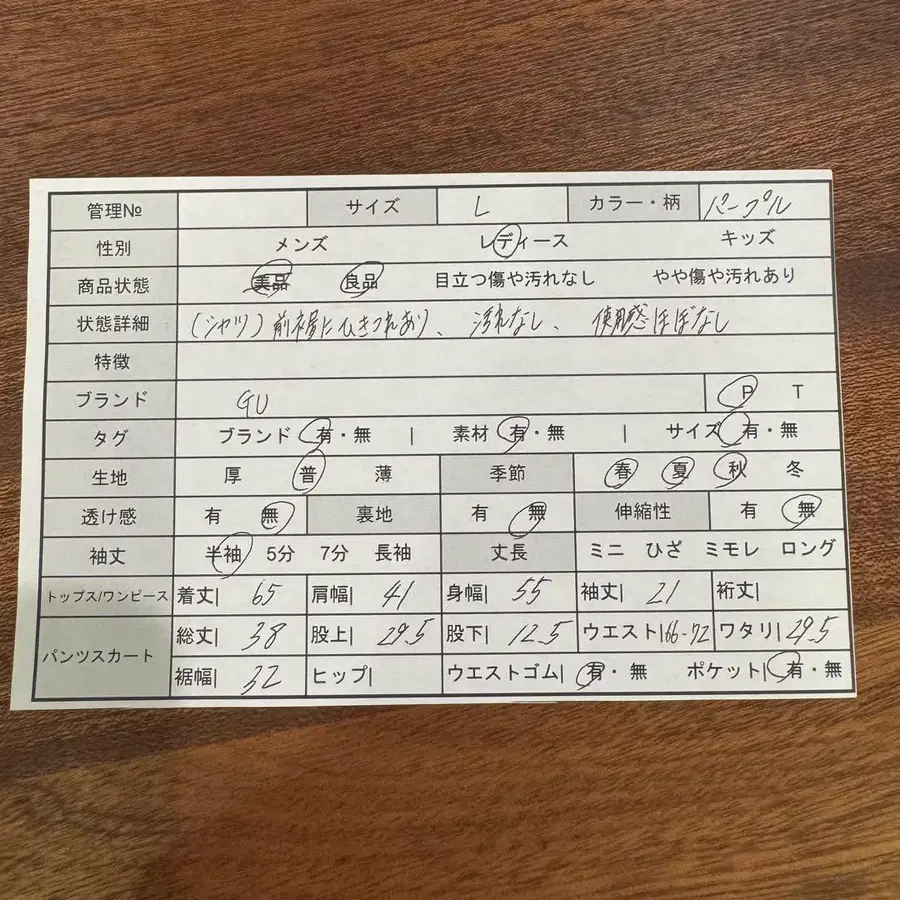 管理№ サイズ L カラー・柄 パープル
性別 メンズ レディース キッズ
商品状態 美品 良品 目立つ傷や汚れなし やや傷や汚れあり
状態詳細 (シャツ) 前裾にひきつれあり、汚れなし、使用感ほぼなし
特徴
ブランド GU P T
タグ ブランド 有・無 | 素材 有・無 | サイズ 有・無
生地 厚 普 薄 季節 春 夏 秋 冬
透け感 有 無 裏地 有 無 伸縮性 有 無
袖丈 半袖 5分 7分 長袖 丈長 ミニ ひざ ミモレ ロング
トップス/ワンピース 着丈| 65 肩幅| 41 身幅| 55 袖丈| 21 裄丈|
パンツスカート 総丈| 38 股上| 29.5 股下| 12.5 ウエスト| 66-72 ワタリ| 29.5
裾幅| 32 ヒップ| ウエストゴム| 有・無 ポケット| 有・無